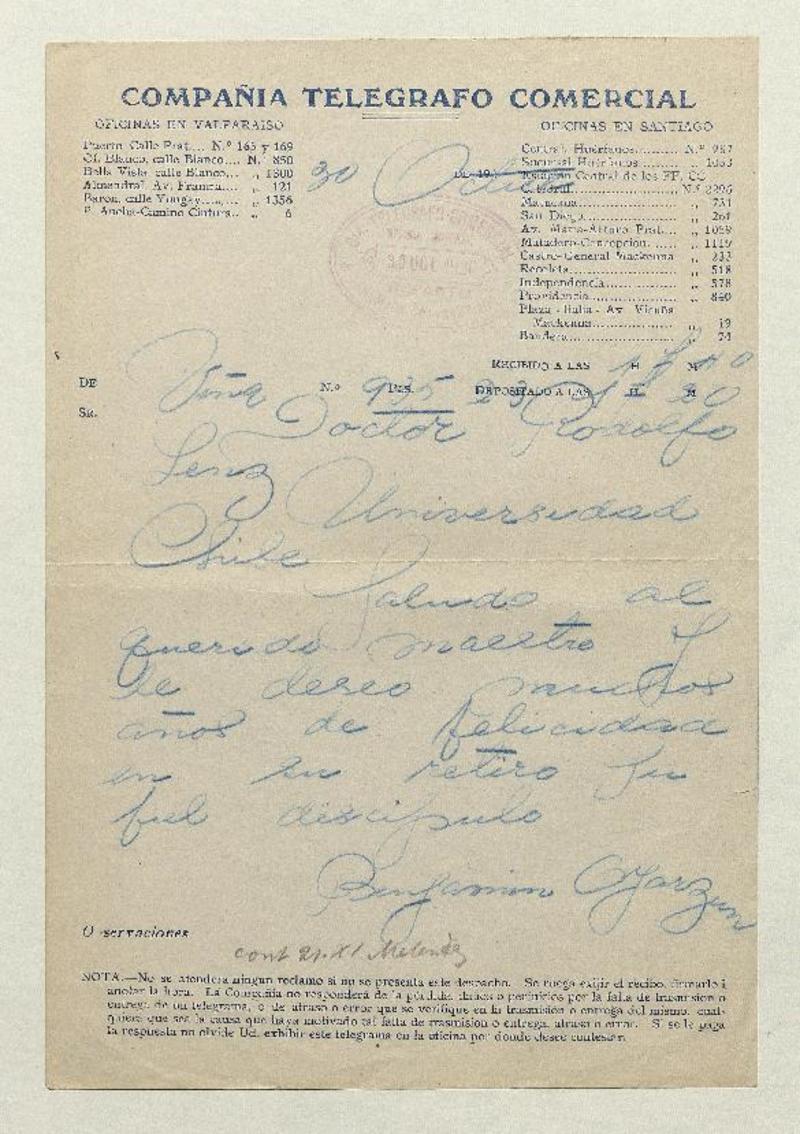 COMPAÑIA TELEGRAFO COMERCIAL
OFICINAS EN VALPARAISO
Puerto Calle Prat.... N.º 165 y 169
Of. Blanco, calle Blanco.... N.º 850
Bella Vista, calle Blanco.... „ 1300
Almendral, Av. Francia.... „ 121
Baron, calle Yungay.... „ 1356
P. Ancha-Camino Cintura.. „ 6
OFICINAS EN SANTIAGO
Central, Huérfanos........ N.º 987
Sucursal Huérfanos........ „ 1063
Estación Central de los FF. CC.
Catedral.... N.º 2296
Matucana.... „ 731
San Diego.... „ 261
Av. Maria-Arturo Prat.... „ 1059
Matadero-Concepcion.... „ 1119
Castro-General Mackenna „ 233
Recoleta.... „ 518
Independencia.... „ 578
Providencia.... „ 840
Plaza - Italia - Av. Vicuña
Mackenna.... „ 19
Bandera.... „ 74
30 Octu DE 19
30 OCT
RECIBIDO A LAS H M
DE Viña N.º 935 Pls. 23 DEPOSITADO A LAS H. 20 M
SR. Doctor Rodolfo
Lenz Universidad
Chile
Saludo al
querido maestro y
le deseo muchos
años de felicidad
en su retiro Su
fiel discípulo
Benjamin Oyarzun
O servaciones
cont 21.XI Melendez
NOTA.—No se atenderá ningun reclamo si no se presenta este despacho. Se ruega exijir el recibo, firmarlo i
anotar la hora. La Compañia no responderá de la pérdida, daños o perjuicios por la falta de trasmision o
entrega de un telegrama, o de atraso o error que se verifique en la trasmision o entrega del mismo, cual-
quiera que sea la causa que haya motivado tal falta de trasmision o entrega, atraso o error. Si se le paga
la respuesta no olvide Ud. exhibir este telegrama en la oficina por donde desee contestar.